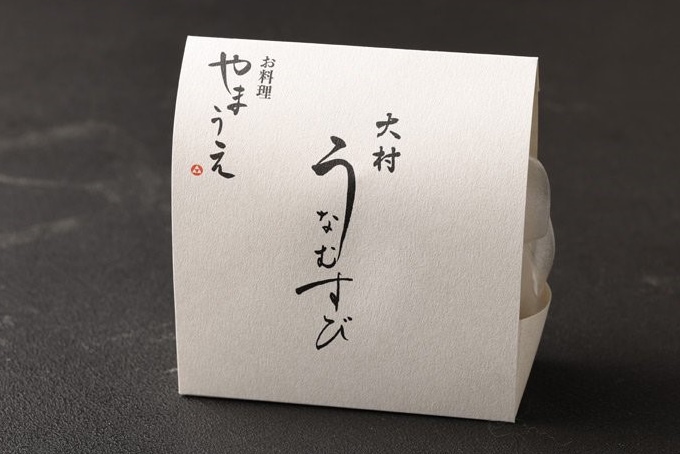 大村
うなむすび
お料理
やまうえ